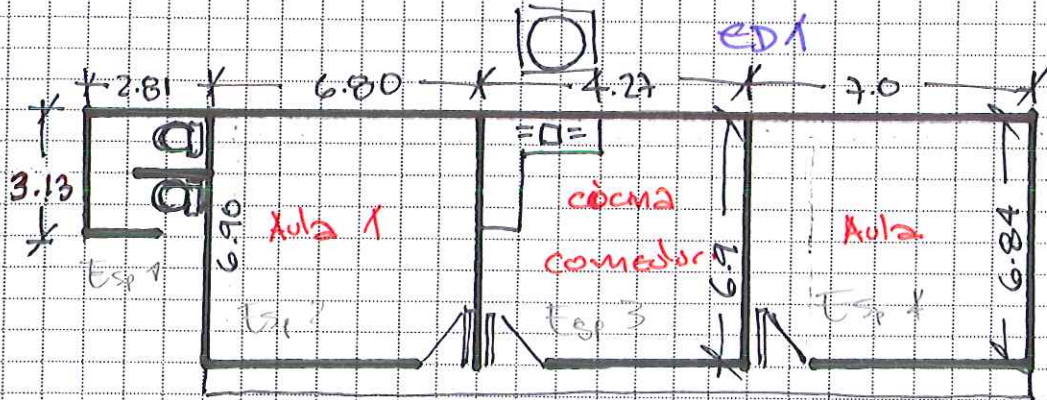 ED1
2.81 6.80 4.27 7.0
3.13
6.90
Aula 1
cocina
comedor
6.9
Aula
6.84
Esp 1
Esp
Esp 3
Esp 4